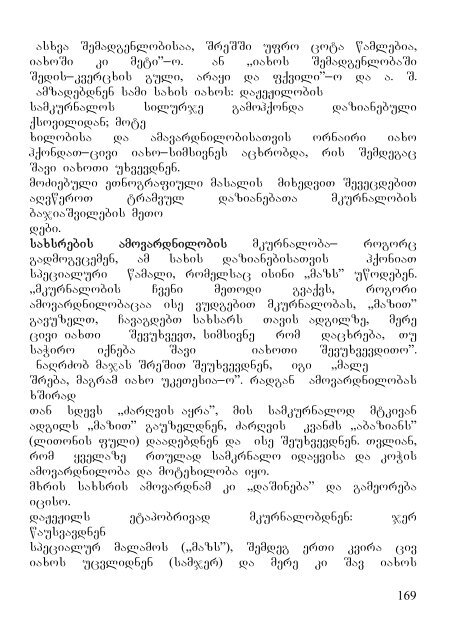 ასხვა შემადგენლობისაა, შრეშში უფრო ცოტა წამლებია,
იახოში კი მეტი"–ო. ან „იახოს შემადგენლობაში
შედის–კვერცხის გული, არაყი და ფქვილი"–ო და ა. შ.
ამზადებდნენ სამი სახის იახოს: დაჟეჟილობის
სამკურნალოს სილურჯე გამოჰქონდა დაზიანებული
ქსოვილიდან; მოტე
ხილობისა და ამავარდნილობისათვის ორნაირი იახო
ჰქონდათ–ცივი იახო–სიმსივნეს აცხრობდა, რის შემდეგაც
შავი იახოთი უხვევდნენ.
მოძიებული ეთნოგრაფიული მასალის მიხედვით შევეცდებით
აღვწეროთ ტრამვულ დაზიანებათა მკურნალობის
ბაჯიაშვილების მეთო
დები.
სახსრების ამოვარდნილობის მკურნალობა– როგორც
გადმოგვცემენ, ამ სახის დაზიანებისათვის ჰქონიათ
სპეციალური წამალი, რომელსაც ისინი „მაზს" უწოდებენ.
„მკურნალობის ჩვენი მეთოდი გვაქვს, როგორი
ამოვარდნილობაცაა ისე ვუდგებით მკურნალობას, „მაზით"
გავუზელთ, ჩავაგდებთ სახსარს თავის ადგილზე, მერე
ცივი იახთი შევუხვევთ, სიმსივნე რომ დაცხრება, თუ
საჭირო იქნება შავი იახოთი შევუხვევდითო".
ნაღრძობ მაჯას შრეშით შეუხვევდნენ, იგი „მალე
შრება, მაგრამ იახო უკეთესია–ო". რადგან ამოვარდნილობას
ხშირად
თან სდევს „ძარღვის აყრა", მის სამკურნალოდ მტკივან
ადგილს „მაზით" გაუზელდნენ, ძარღვის კვანძს „აბაზიანს"
(ლითონის ფული) დაადებდნენ და ისე შეუხვევდნენ. თვლიან,
რომ ყველაზე რთულად სამკრნალო იდაყვისა და კოჭის
ამოვარდნილობა და მოტეხილობა იყო.
მხრის სახსრის ამოვარდნამ კი „დაშინება" და გამეორება
იცისო.
დაჟეჟილს ეტაპობრივად მკურნალობდნენ: ჯერ
წაუსვავდნენ
სპეციალურ მალამოს („მაზს"), შემდეგ ერთი კვირა ცივ
იახოს უცვლიდნენ (სამჯერ) და მერე კი შავ იახოს
169